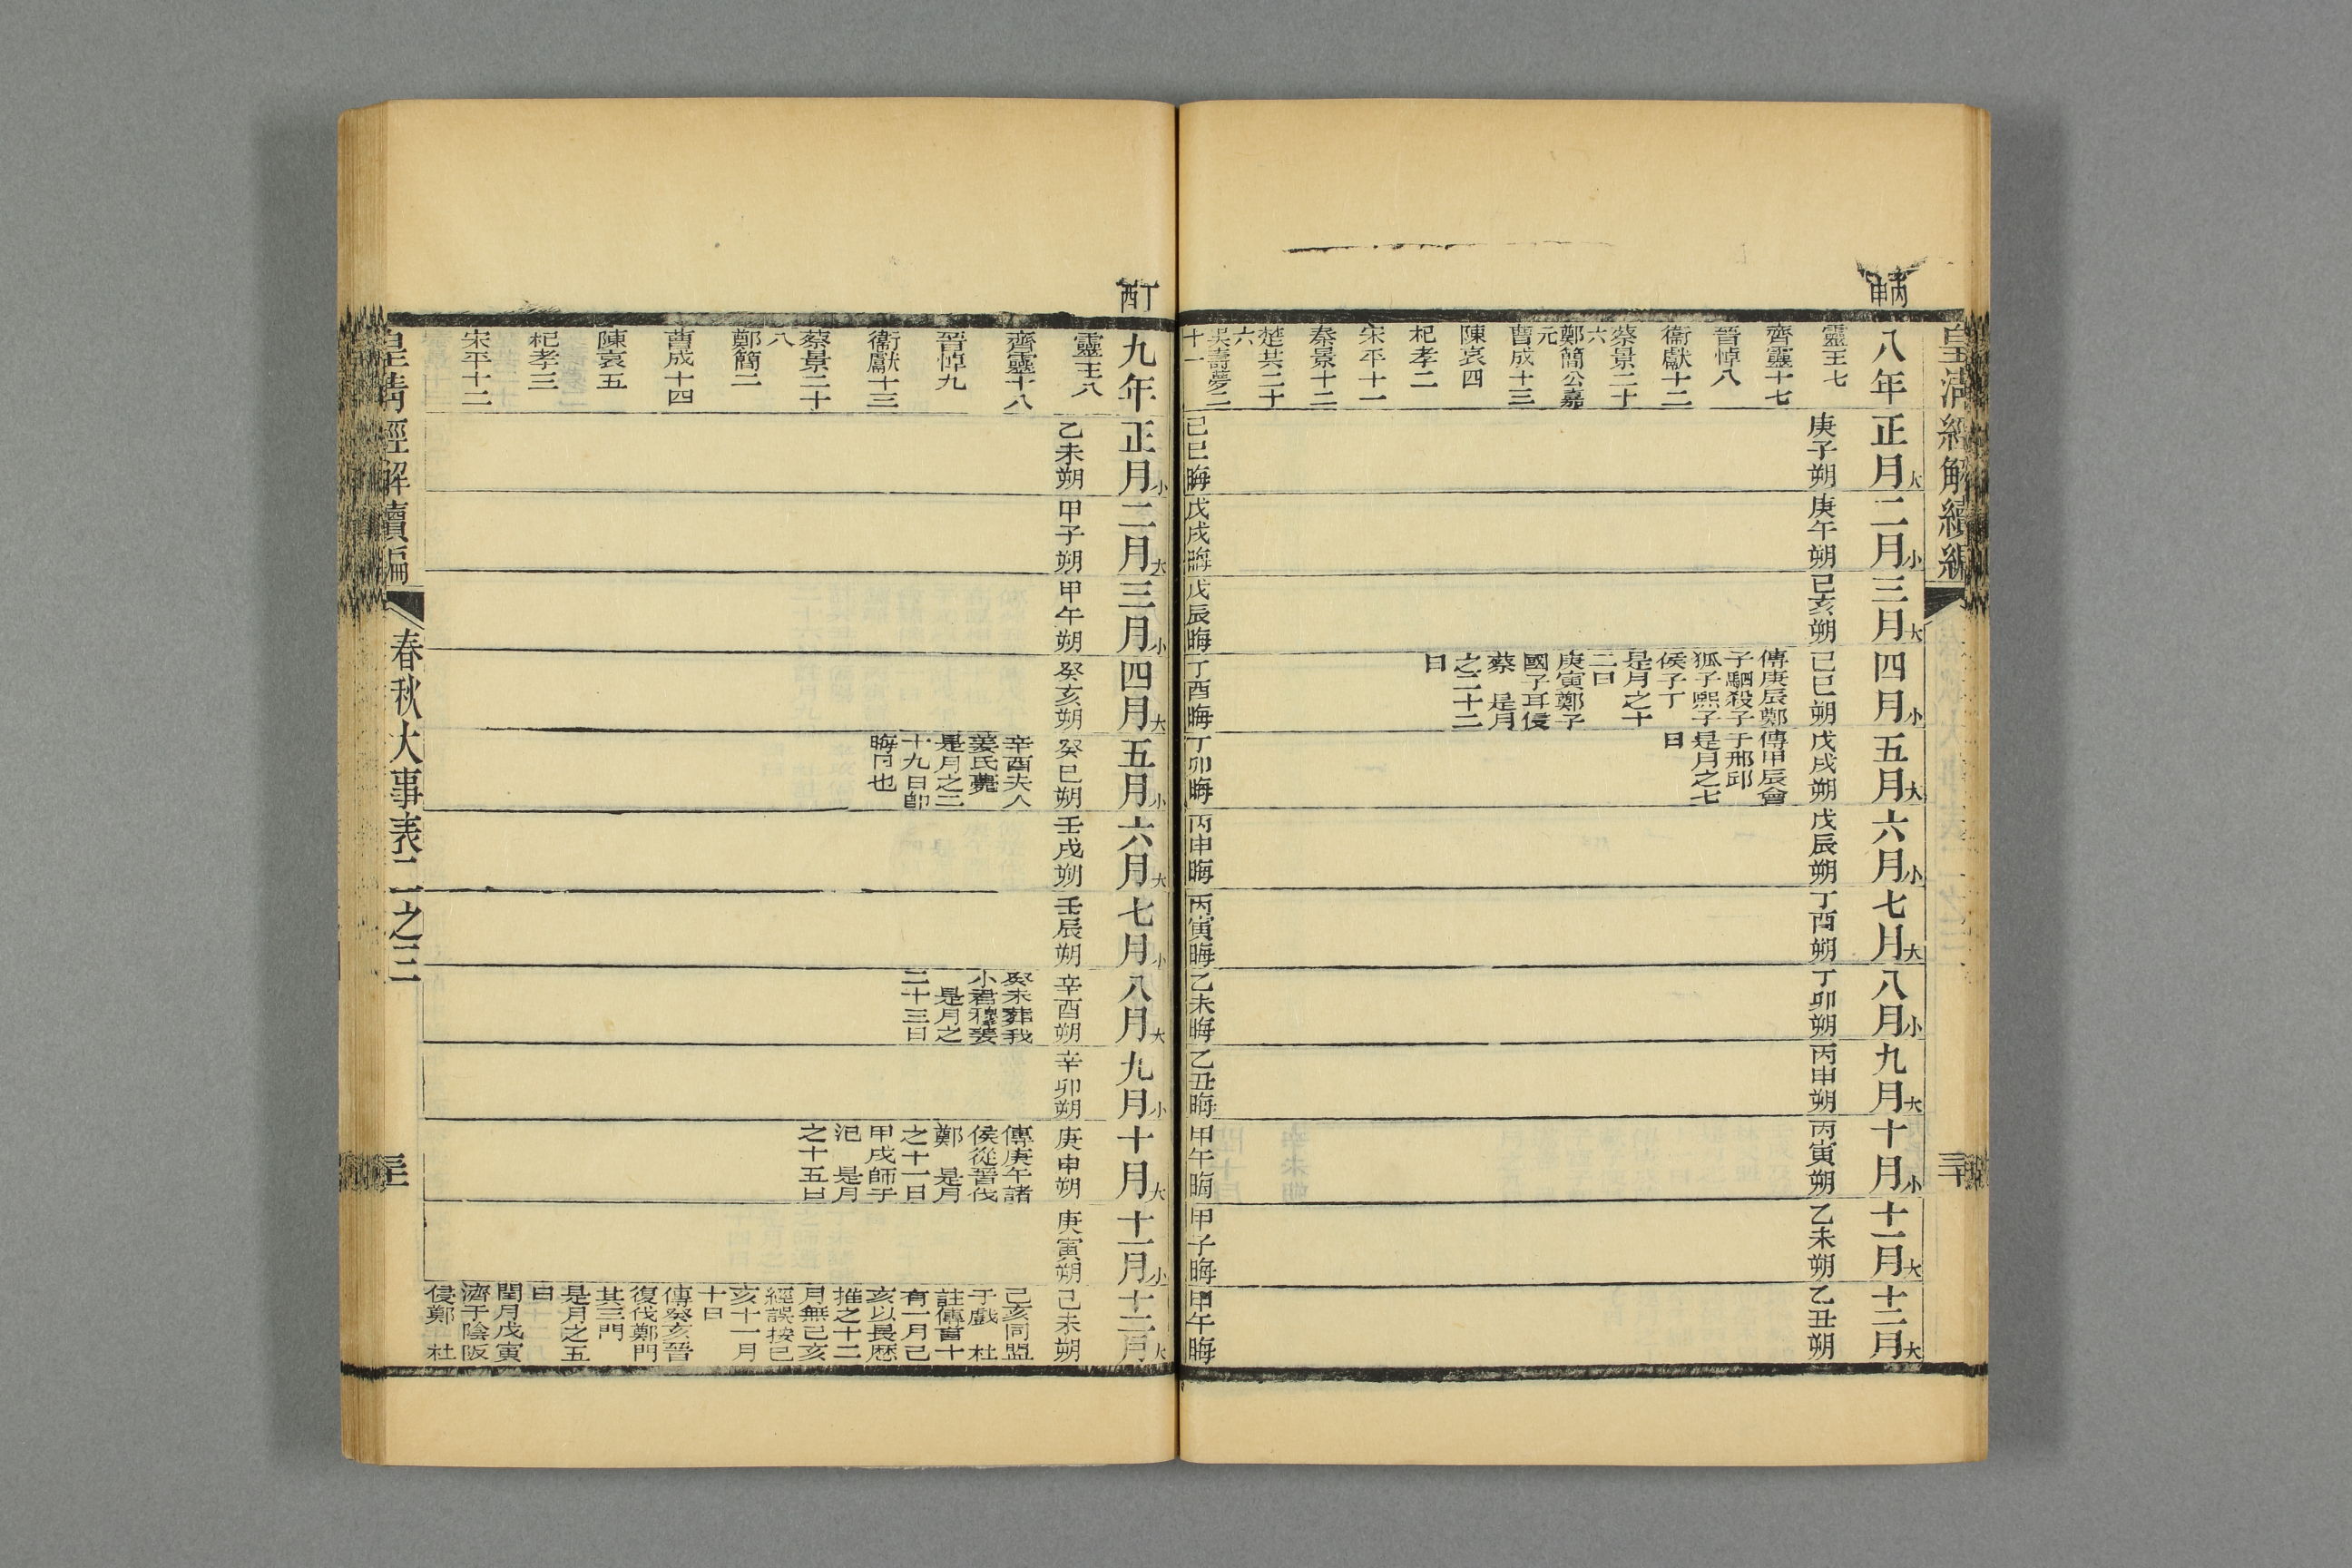 皇清經解續編
三十
丙申
八年
靈王七
齊靈十七
晉悼八
衞獻十二
蔡景二十
六
鄭簡公嘉
元
曹成十三
陳哀四
杞孝二
宋平十一
秦景十二
楚共二十
六
吳壽夢二
十一
正月大
庚子朔
己巳晦
二月小
庚午朔
戊戌晦
三月大
己亥朔
戊辰晦
四月小
己巳朔
傳庚辰鄭
子駟殺子
狐子熙子
侯子丁
是月之十
二日
庚寅鄭子
國子耳侵
蔡　是月
之二十二
日
丁酉晦
五月大
戊戌朔
傳甲辰會
于邢邱
是月之七
日
丁卯晦
六月小
戊辰朔
丙申晦
七月大
丁酉朔
丙寅晦
八月小
丁卯朔
乙未晦
九月大
丙申朔
乙丑晦
十月小
丙寅朔
甲午晦
十一月大
乙未朔
甲子晦
十二月大
乙丑朔
甲午晦
丁酉
九年
靈王八
齊靈十八
晉悼九
衞獻十三
蔡景二十
八
鄭簡二
曹成十四
陳哀五
杞孝三
宋平十二
正月小
乙未朔
二月大
甲子朔
三月小
甲午朔
四月大
癸亥朔
五月小
癸巳朔
辛酉夫人
姜氏薨
是月之二
十九日卽
晦日也
六月大
壬戌朔
七月小
壬辰朔
八月大
辛酉朔
癸未葬我
小君穆姜
是月之
二十三日
九月小
辛卯朔
十月大
庚申朔
傳庚午諸
侯從晉伐
鄭　是月
之十一日
甲戌師于
汜　是月
之十五日
十一月小
庚寅朔
十二月大
己未朔
己亥同盟
于戲　杜
註傳言十
有一月己
亥以長歷
推之十二
月無己亥
經誤按己
亥十一月
十日
傳癸亥晉
復伐鄭門
其三門
是月之五
日
閏月戊寅
濟于陰阪
侵鄭　杜
皇清經解續編
春秋大事表二之三